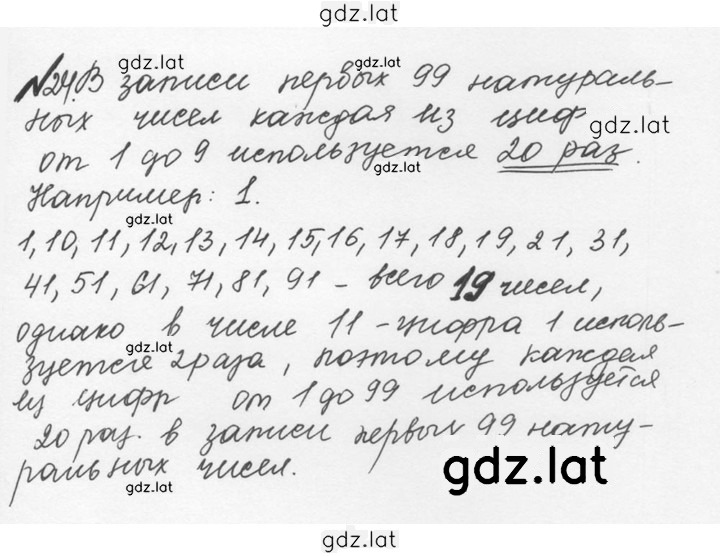 gdz.lat
№24. В записи первых 99 натураль-
gdz.lat
ных чисел каждая из цифр
gdz.lat
от 1 до 9 используется 20 раз.
Например: 1.
gdz.lat
1, 10, 11, 12, 13, 14, 15, 16, 17, 18, 19, 21, 31,
41, 51, 61, 71, 81, 91 - всего 19 чисел,
однако в числе 11 - цифра 1 исполь-
gdz.lat
зуется 2 раза, поэтому каждая
из цифр от 1 до 99 используется
20 раз. в записи первых 99 нату-
ральных чисел.
gdz.lat
gdz.lat
gdz.lat